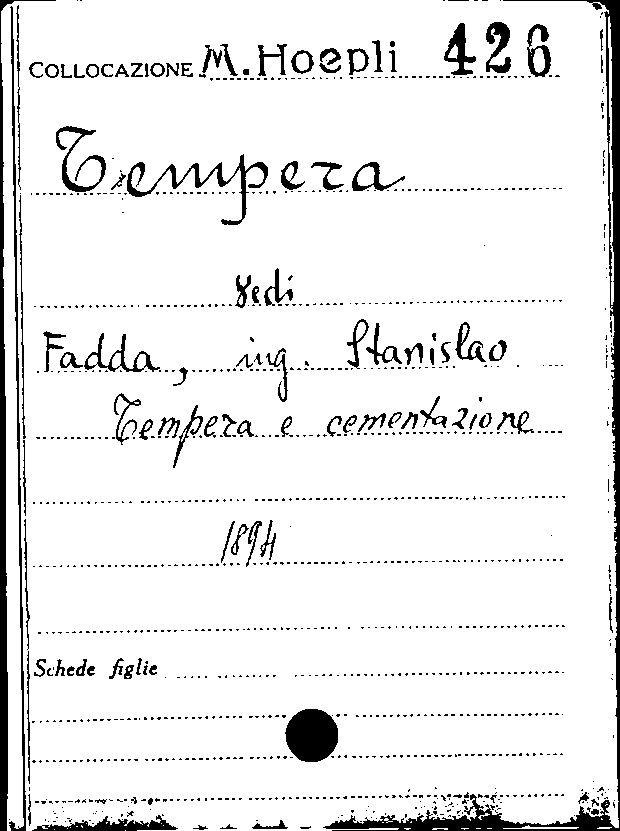 COLLOCAZIONE M. Hoepli 426
Tempera
Vedi
Fadda, ing. Stanislao
Tempera e cementazione
1894
Schede figlie